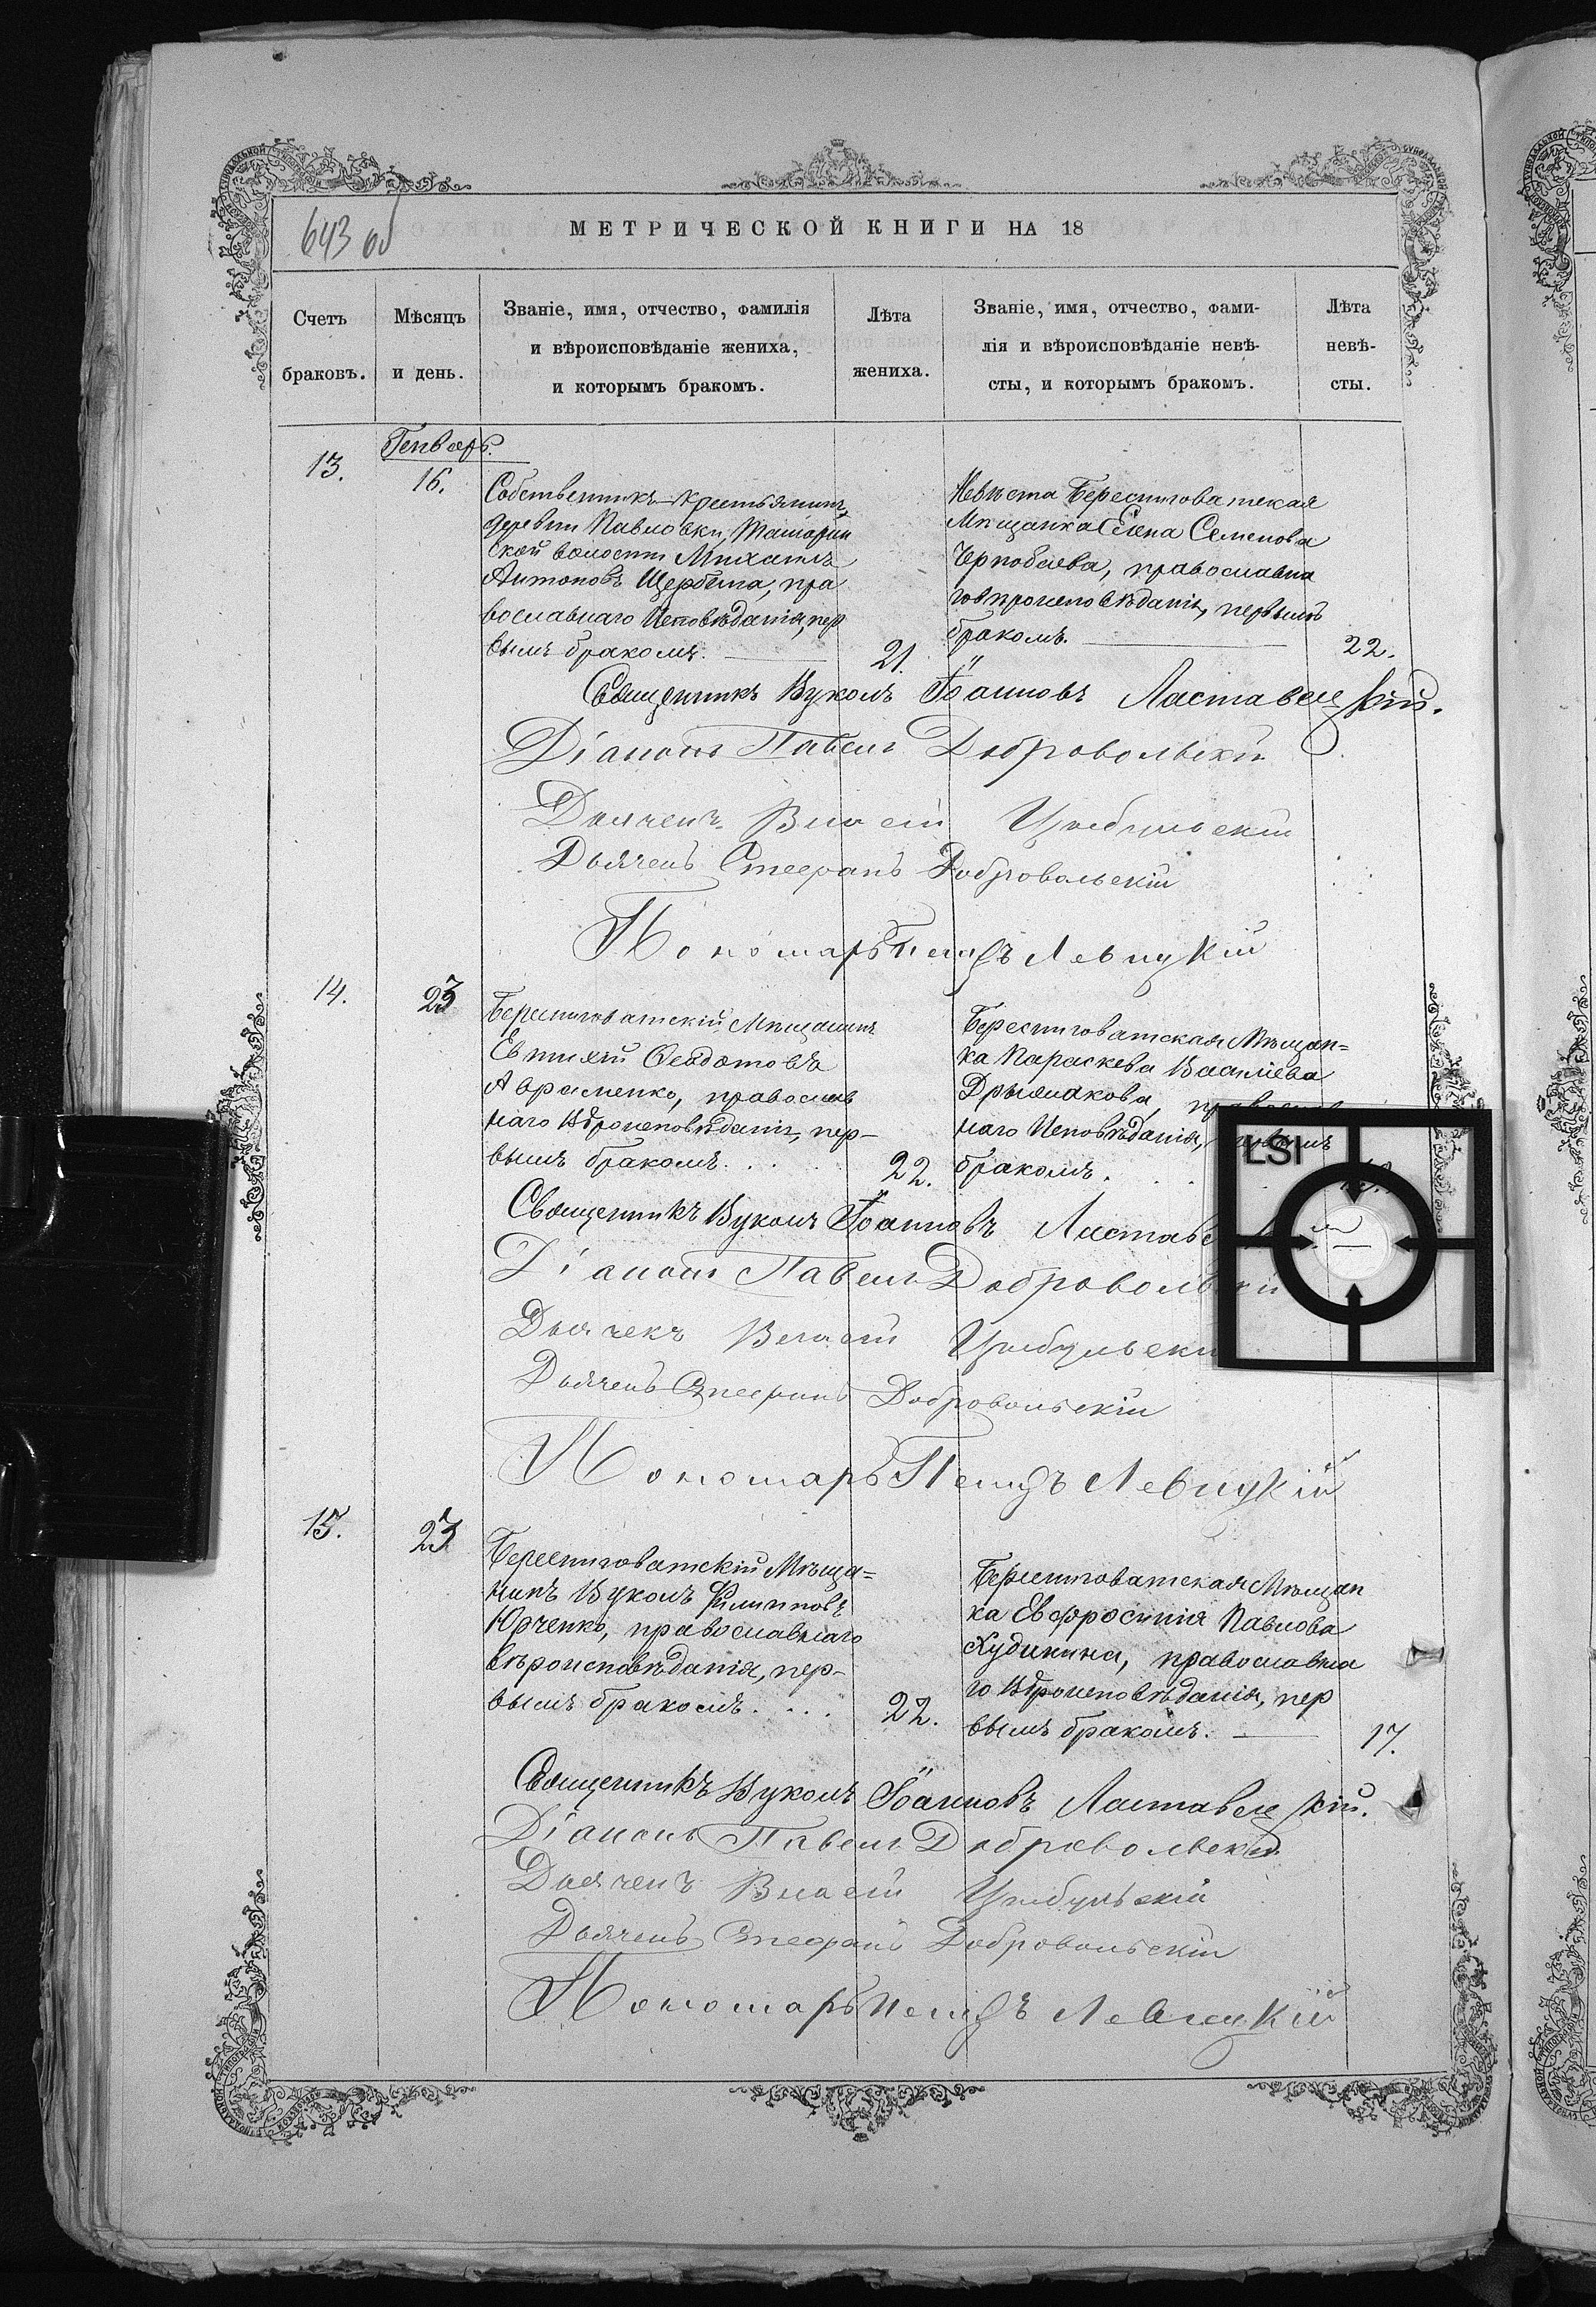 643 об
МЕТРИЧЕСКОЙ КНИГИ НА 18
Счетъ
браковъ.
Мѣсяцъ
и день.
Званіе, имя, отчество, фамилія
и вѣроисповѣданіе жениха,
и которымъ бракомъ.
Лѣта
жениха.
Званіе, имя, отчество, фами-
лія и вѣроисповѣданіе невѣ-
сты, и которымъ бракомъ.
Лѣта
невѣ-
сты.
Генварь.
13.
16.
Собственникъ-крестьянинъ
деревни Павловки,
ской волости Михаилъ
Антоновъ Щербина, пра
вославнаго Исповѣданія, пер
вымъ бракомъ.
21.
Невѣста Берестоватская
Мѣщанка Елена Семенова
православна
го вѣроисповѣданія, первымъ
бракомъ.
22.
Священникъ Вуколъ Іоанновъ Ластавецкій.
Діаконъ Павелъ Добровольскій
Дьячекъ Власій Цыбульскій
Дьячекъ Стефанъ Добровольскій
Пономарь Петръ Левицкій
14.
23
Берестоватскій Мѣщанинъ
Евтихій Ѳеодотовъ
Авраменко, православ
наго Вѣроисповѣданія, пер-
вымъ бракомъ. . . .
22.
Берестоватская Мѣщан=
ка Параскева Васильева
наго Исповѣданія,
бракомъ. . .
LSI
Священникъ Вуколъ Іоанновъ
Діаконъ Павелъ Добровольскій
Дьячекъ Власій
Дьячекъ Стефанъ Добровольскій
Пономарь Петръ Левицкій
15.
23
Берестоватскій Мѣща=
нинъ Вуколъ Филипповъ
Юрченко, православнаго
вѣроисповѣданія, пер-
вымъ бракомъ. . . .
22.
Берестоватская Мѣщан
ка Евфросинія Павлова
православна
го Вѣроисповѣданія, пер
вымъ бракомъ.
17.
Священникъ Вуколъ Іоанновъ Ластавецкій.
Діаконъ Павелъ Добровольскій
Дьячекъ Власій Цыбульскій
Дьячекъ Стефанъ Добровольскій
Пономарь Петръ Левицкій